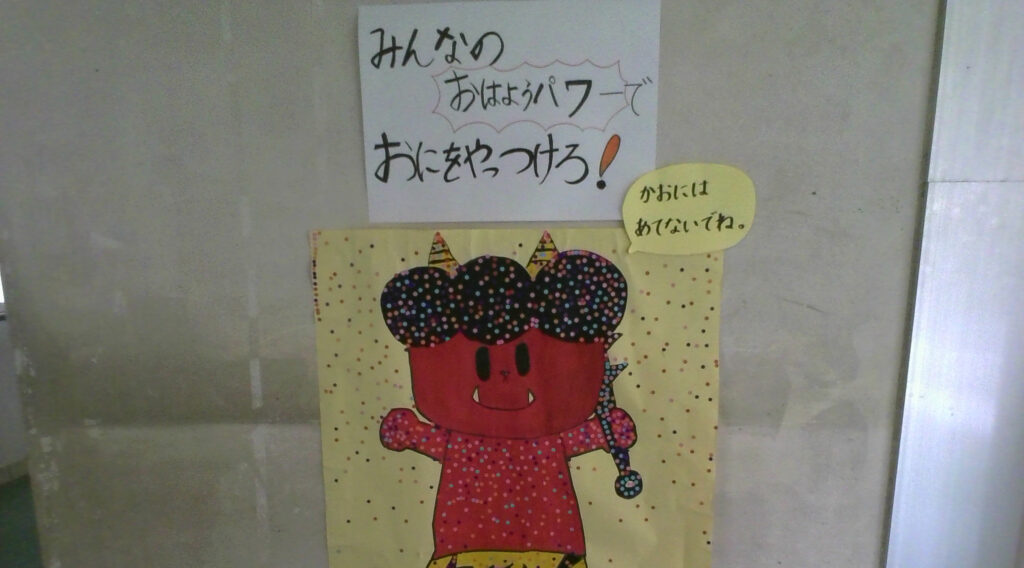 みんなの
おはようパワーで
おにをやっつけろ!
かおには
あてないでね。